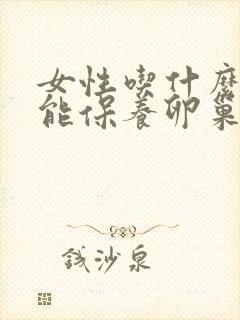 女性喫什麽
能保養卵巢
錢沙泉